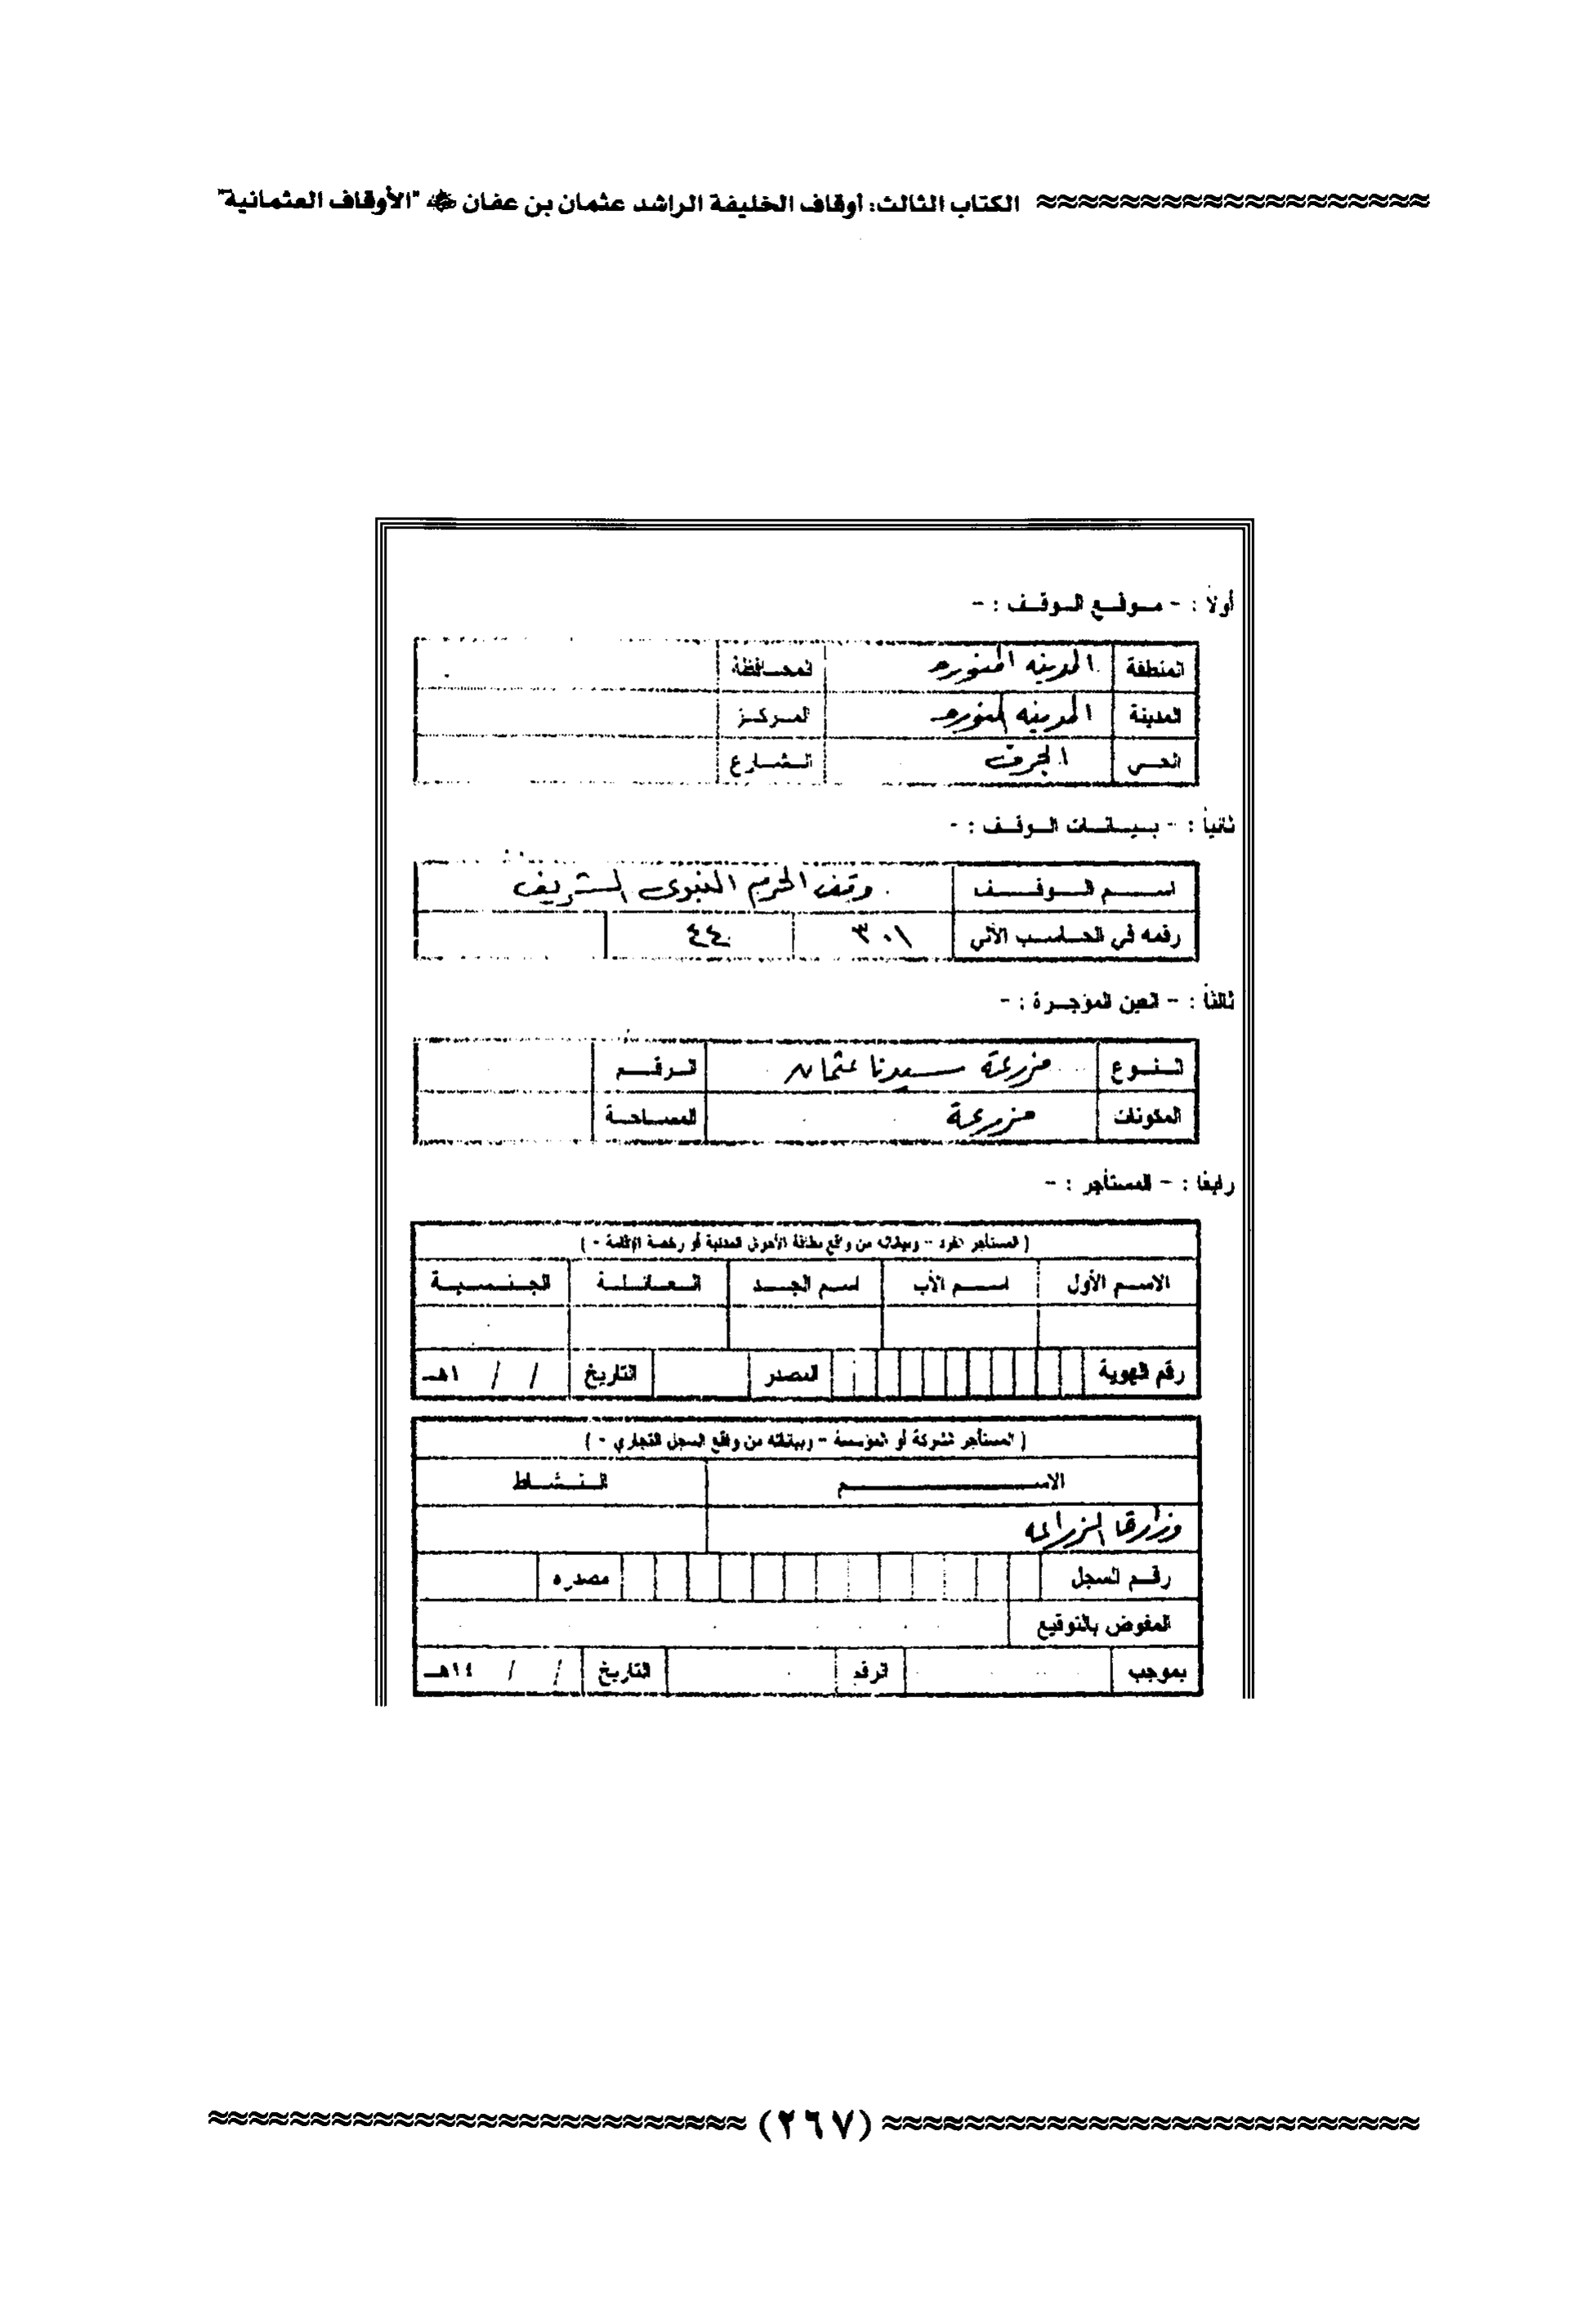 الكتاب الثالث: أوقاف الخليفة الراشد عثمان بن عفان ﷺ "الأوقاف العثمانية"
أولاً : - موقع الوقف : -
المنطقة المدينه المنوره المحافظة
المدينة المدينه المنوره المركز
الحي الجرف الشارع
ثانياً : - بيانات الوقف : -
اسم الوقف وقف الحرم النبوى الشريف
رقمه في الحاسب الآلي ٣٠١ ٤٤
ثالثاً : - العين المؤجرة : -
النوع مزرعة سيدنا عثمان الرقم
المكونات مزرعة المساحة
رابعاً : - المستأجر : -
( المستأجر الفرد - وبياناته من واقع بطاقة الأحوال المدنية أو رخصة الإقامة - )
الاسم الأول اسم الأب اسم الجد العائلة الجنسية
رقم الهوية المصدر التاريخ / / ١هـ
( المستأجر الشركة أو المؤسسة - وبياناته من واقع السجل التجاري - )
الاسم النشاط
وزارة الزراعه
رقم السجل مصدره
المفوض بالتوقيع
بموجب الرقم التاريخ / / ١٤هـ
(٢٦٧)